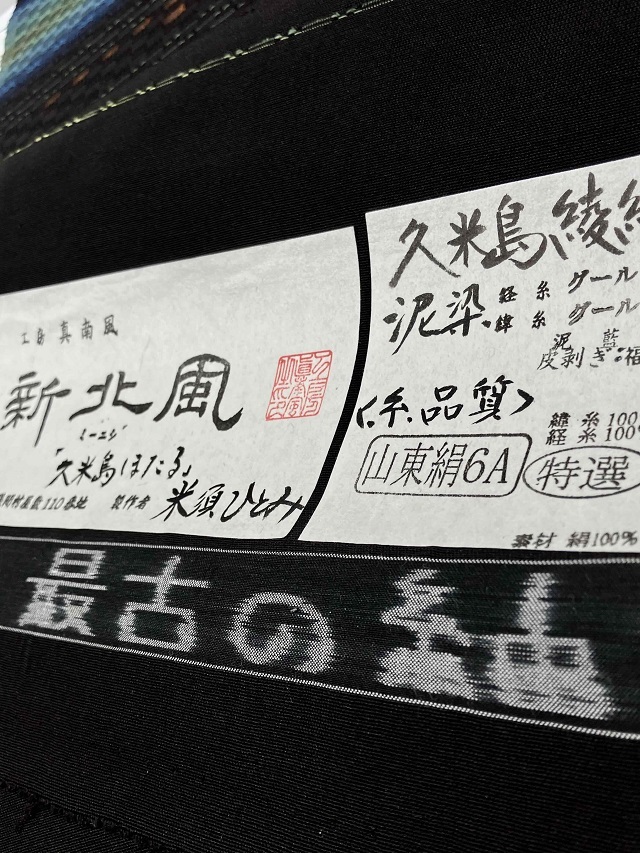 工房 真南風
新北風
ミーニシ
「久米島ほたる」
110番地 製作者 米須ひとみ
久米島綾
泥染 経糸 グール
緯糸 グール
泥 藍
皮剥ぎ:福
〈糸品質〉
緯糸100
経糸100%
山東絹6A 特選
素材 絹100%
最古の